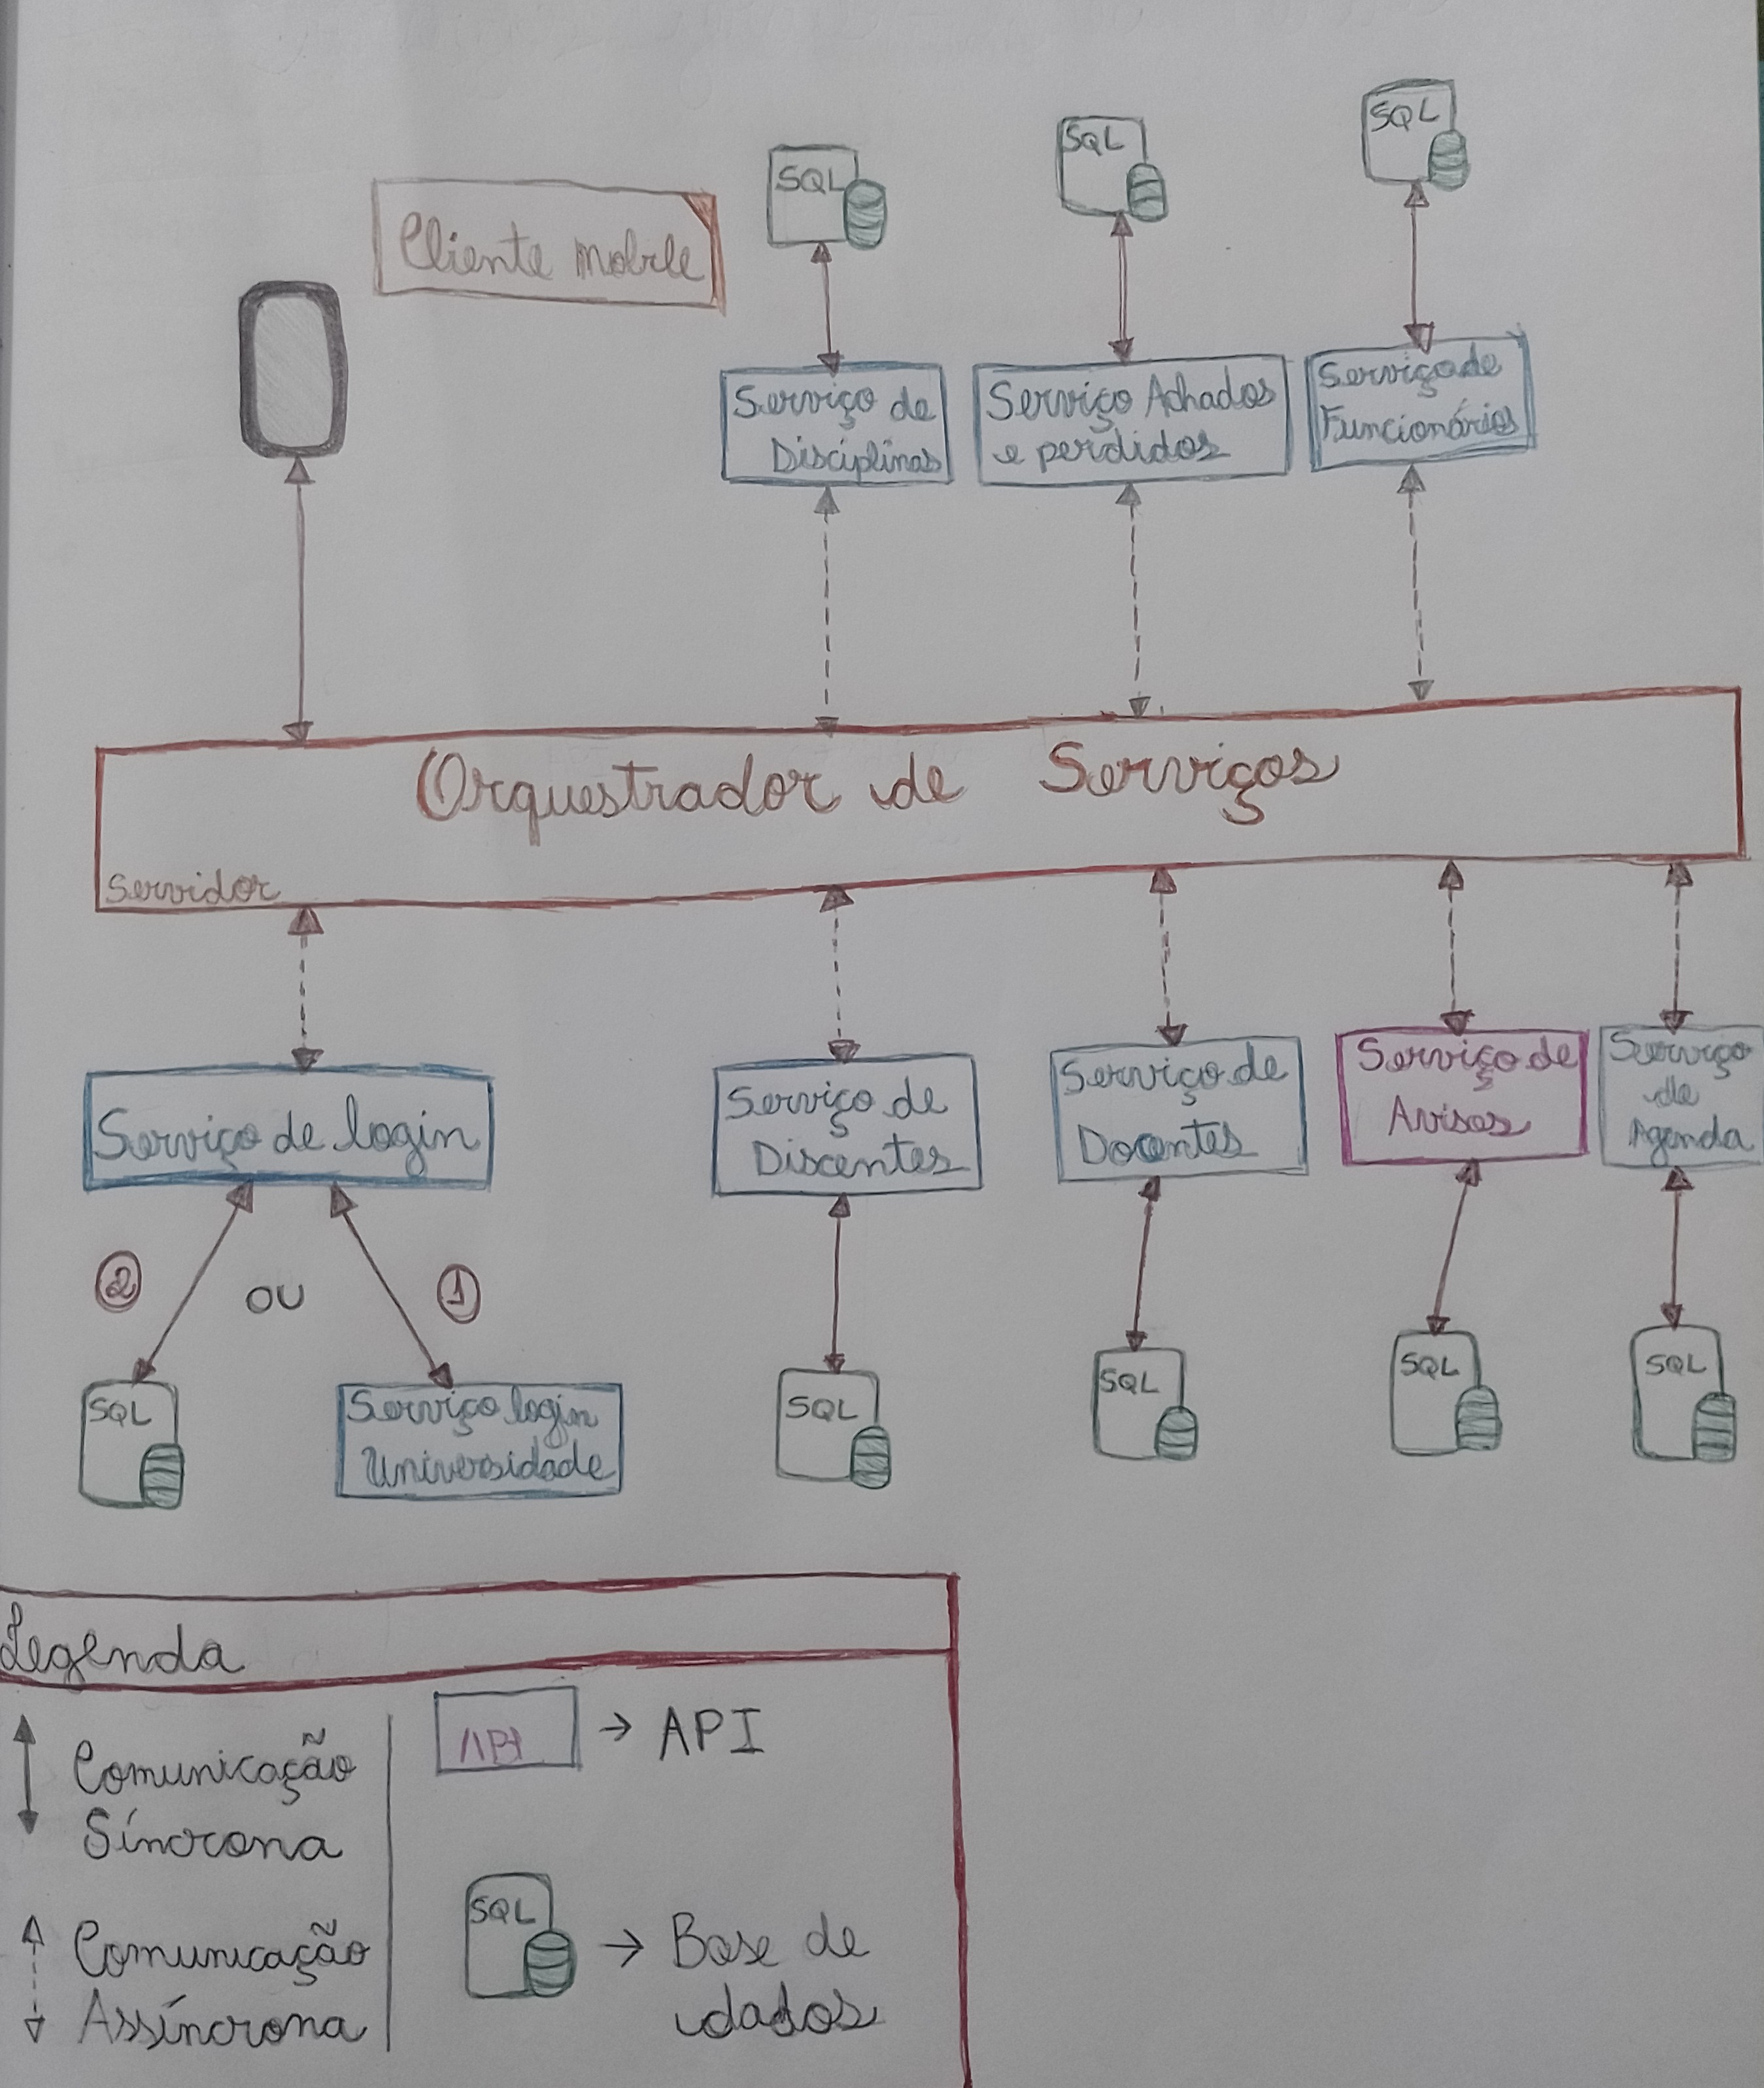 SQL
SQL
SQL
Cliente mobile
Serviço de
Disciplinas
Serviço Achados
e perdidos
Serviço de
Funcionários
Orquestrador de Serviços
Servidor
Serviço de login
Serviço de
Discentes
Serviço de
Docentes
Serviço de
Avisos
Serviço
de
Agenda
2
OU
1
SQL
Serviço login
Universidade
SQL
SQL
SQL
SQL
Legenda
Comunicação
Síncrona
API → API
Comunicação
Assíncrona
SQL
→ Base de
dados